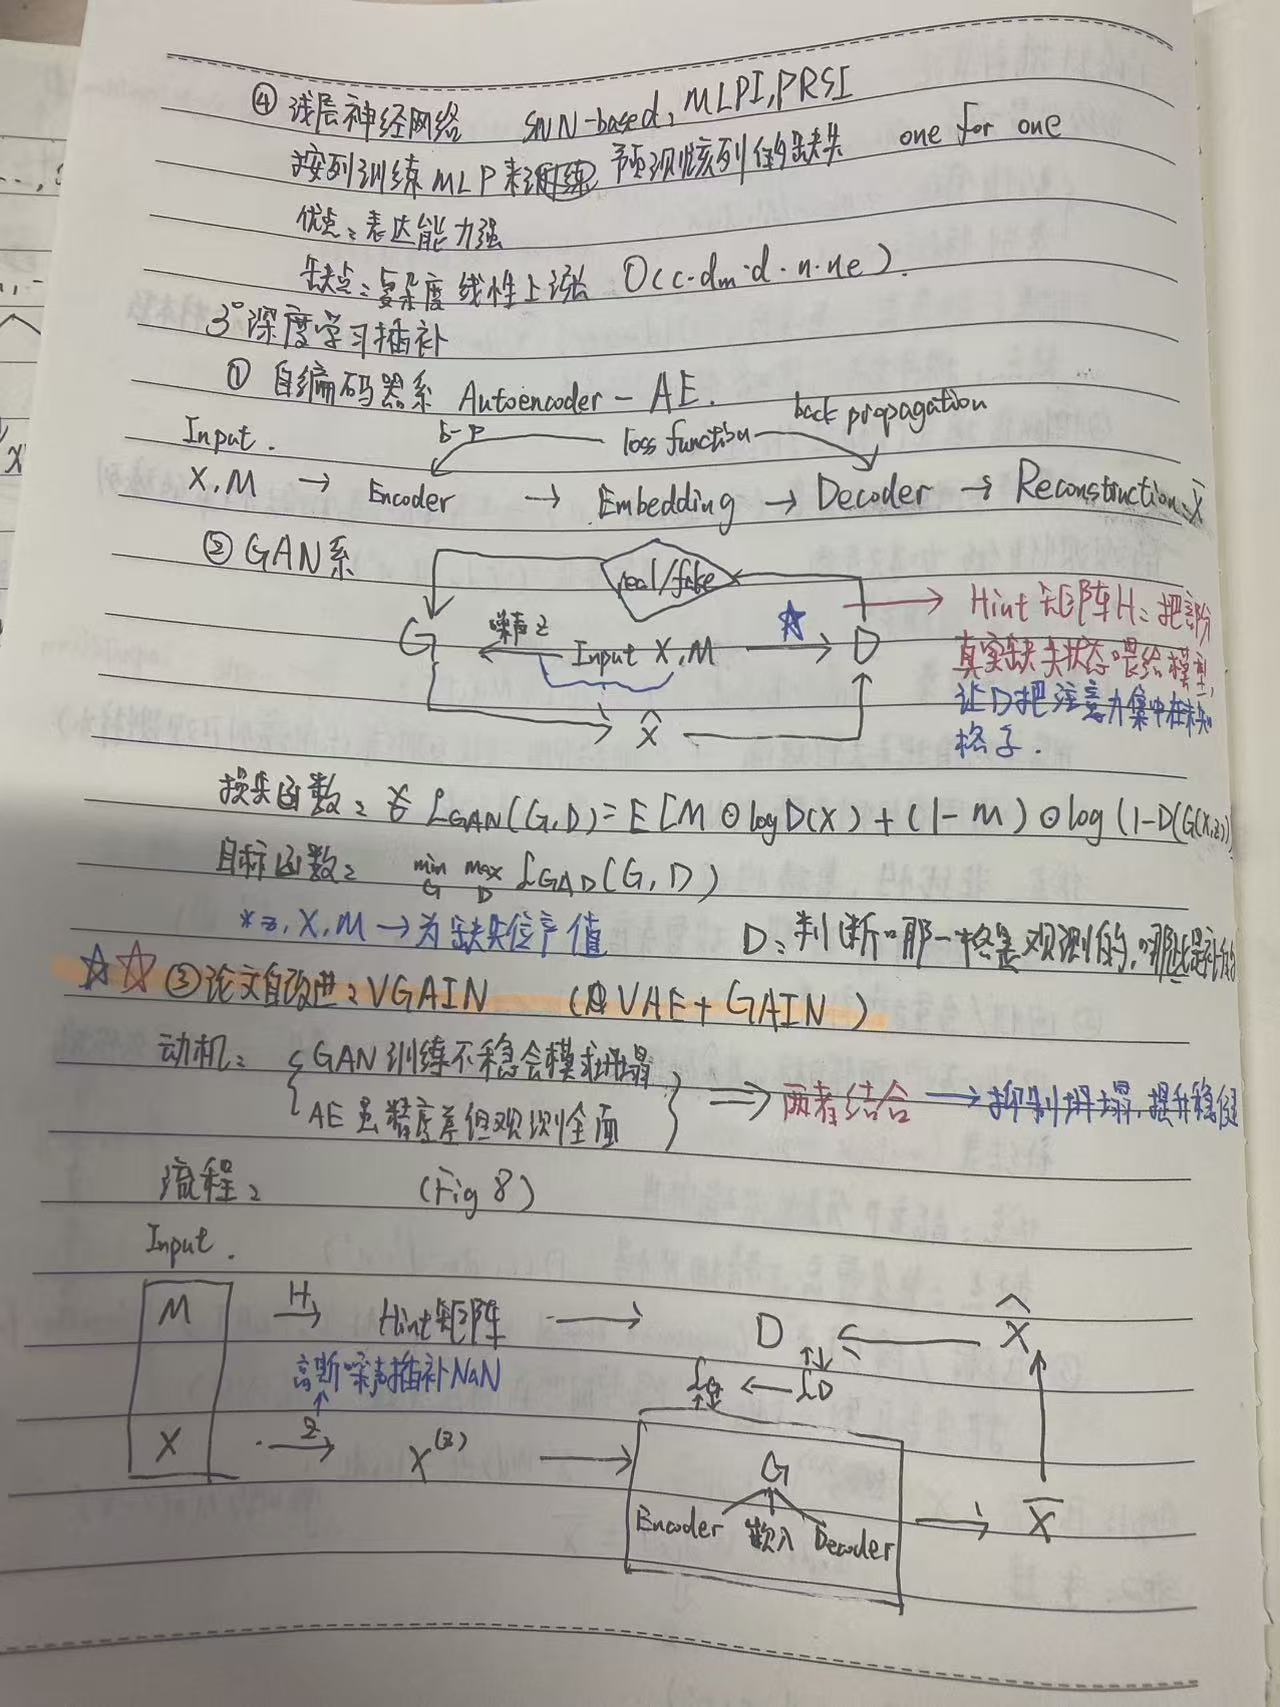 ④ 浅层神经网络 SNN-based, MLPI, PRSI
按列训练MLP来 预测该列的缺失 one for one
优点: 表达能力强
缺点: 复杂度线性上涨 O(c·dm·d·n·ne).
3° 深度学习插补
① 自编码器系 Autoencoder - AE.
b-p loss function back propagation
Input.
X, M → Encoder → Embedding → Decoder → Reconstruction: X̄
② GAN系
real/fake
G 噪声z Input X, M ☆ D
X̂
Hint矩阵H: 把部分
真实缺失状态喂给模型,
让D把注意力集中在未知
格子.
损失函数: ℒGAN(G,D)=E[M⊙logD(X)+(1-m)⊙log(1-D(G(X,z))
目标函数: min G max D ℒGAD(G,D)
*z, X, M → 为缺失位产值 D: 判断哪一格是观测的,哪些是补的
☆☆ ③ 论文自改进: VGAIN (VAE + GAIN)
动机: { GAN训练不稳会模式坍塌
AE虽精度差但观测全面 } ⇒ 两者结合 → 抑制坍塌,提升稳健
流程: (Fig 8)
Input.
M H→ Hint矩阵 → D ← X̂
高斯噪声插补NaN
ℒG ← ℒD
X z→ X(z) → G
Encoder 嵌入 Decoder → X̄